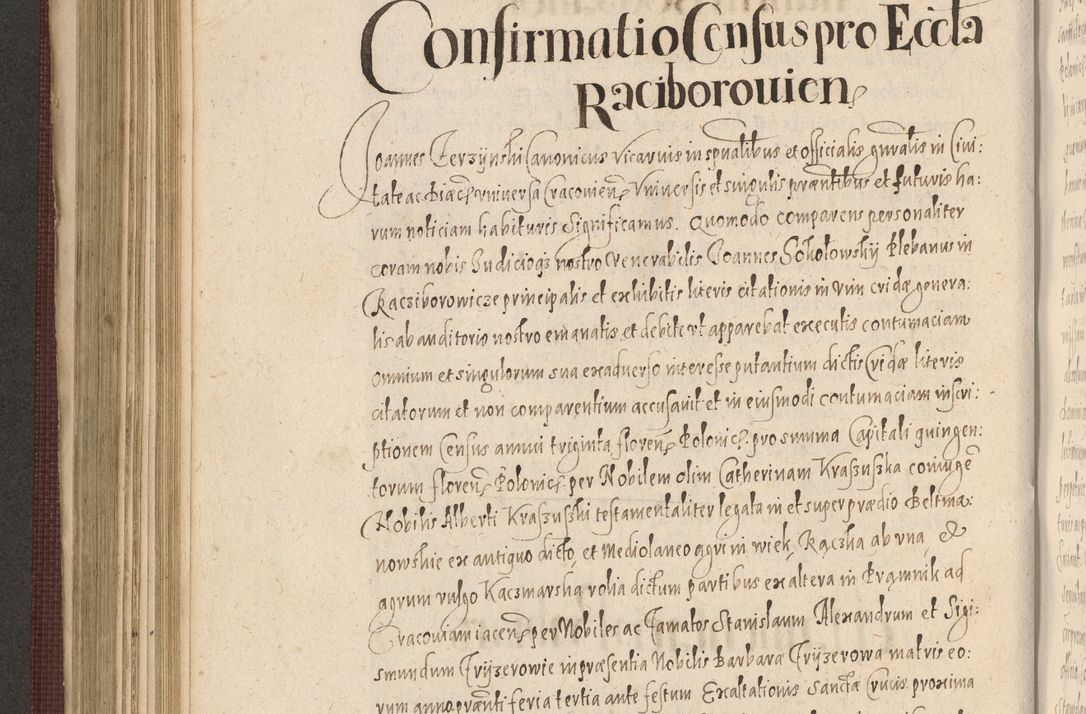 Confirmatio Census pro Eccla
Raciborouien
Joannes Jerzÿnski Canonicus Vicarius in spūalibus et officialis gnralis in Ciui:
tate ac Diaec vniuersa Cracouien Vniuersis et singulis præntibus et futuris ha:
rum noticiam habituris Significamus. Quomodo comparens personaliter
coram nobis Judicioqz nostro Venerabilis Joannes Sokołowskÿ Plebanus in
Racziborowicze principalis et exhibitis literis citationis in vim cridæ genera:
lis ab auditorio nostro emanatis et debite vt apparebat executis contumaciam
omnium et singulorum sua ex aduerso interesse putantium dictis Cridæ literis
citatorum et non comparentium accusauit et in eiusmodi contumaciam inscri:
ptionem Census annui triginta floren Polonic. pro summa Capitali quingen:
torum floren Polonic. per Nobilem olim Catherinam Kraszuska coniugē
Nobilis Alberti Kraszuski testamentaliter legata in et super prædio Beltma:
nowskie ex antiquo dicto, et Mediolaneo agri in wiek Rączka ab vna, et
agrum vulgo Kaczmarska rolia dictum partibus ex altera in Prąmnik ad
Cracouiam iacen per Nobiles ac famatos Stanislaum Alexandrum et Sigi:
smundum Trÿzerowie in præsentia Nobilis Barbara Trÿzerowa matris eo:
rum anno prænti feria tertia ante festum Exaltationis Sanctæ Crucis proxima